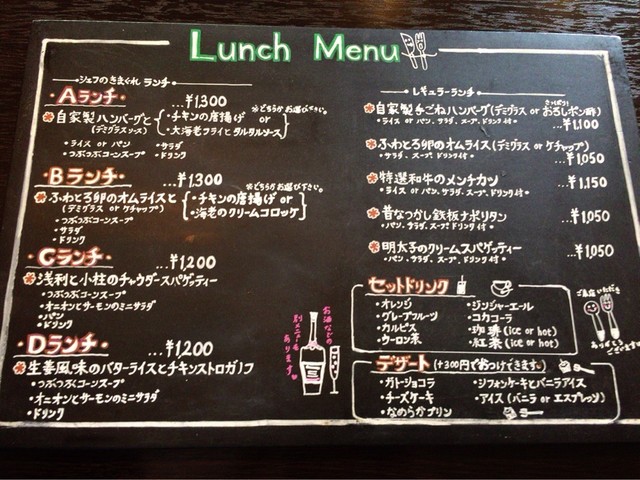 Lunch Menu
シェフのきまぐれ ランチ
・Aランチ・ …¥1,300
※どちらかお選び下さい。
自家製ハンバーグと
(デミグラスソース)
・チキンの唐揚げ
or
・大海老フライとタルタルソース
・ライス or パン ・サラダ
・つぶつぶコーンスープ ・ドリンク
・Bランチ・ …¥1,300
※どちらかお選び下さい。
ふわとろ卵のオムライスと
(デミグラス or ケチャップ)
・チキンの唐揚げ or
・海老のクリームコロッケ
・つぶつぶコーンスープ
・サラダ
・ドリンク
・Cランチ・ …¥1,200
浅利と小柱のチャウダースパゲッティー
・つぶつぶコーンスープ
・オニオンとサーモンのミニサラダ
・パン
・ドリンク
・Dランチ・ …¥1,200
生姜風味のバターライスとチキンストロガノフ
・つぶつぶコーンスープ
・オニオンとサーモンのミニサラダ
・ドリンク
お酒などの
別メニューも
あります
レギュラーランチ
さっぱり!
自家製手ごねハンバーグ(デミグラス or おろしポン酢)
・ライス or パン、サラダ、スープ、ドリンク付 …¥1,100
ふわとろ卵のオムライス(デミグラス or ケチャップ)
・サラダ、スープ、ドリンク付 …¥1,050
特選和牛のメンチカツ …¥1,150
・ライス or パン、サラダ、スープ、ドリンク付
昔なつかし鉄板ナポリタン …¥1,050
・パン、サラダ、スープ、ドリンク付
明太子のクリームスパゲッティー …¥1,050
・パン、サラダ、スープ、ドリンク付
セットドリンク
・オレンジ ・ジンジャーエール
・グレープフルーツ ・コカコーラ
・カルピス ・珈琲 (ice or hot)
・ウーロン茶 ・紅茶 (ice or hot)
ご来店いただき
ありがとうございます
デザート (+300円でおつけできます。)
・ガトーショコラ ・シフォンケーキとバニラアイス
・チーズケーキ ・アイス (バニラ or エスプレッソ)
・なめらかプリン